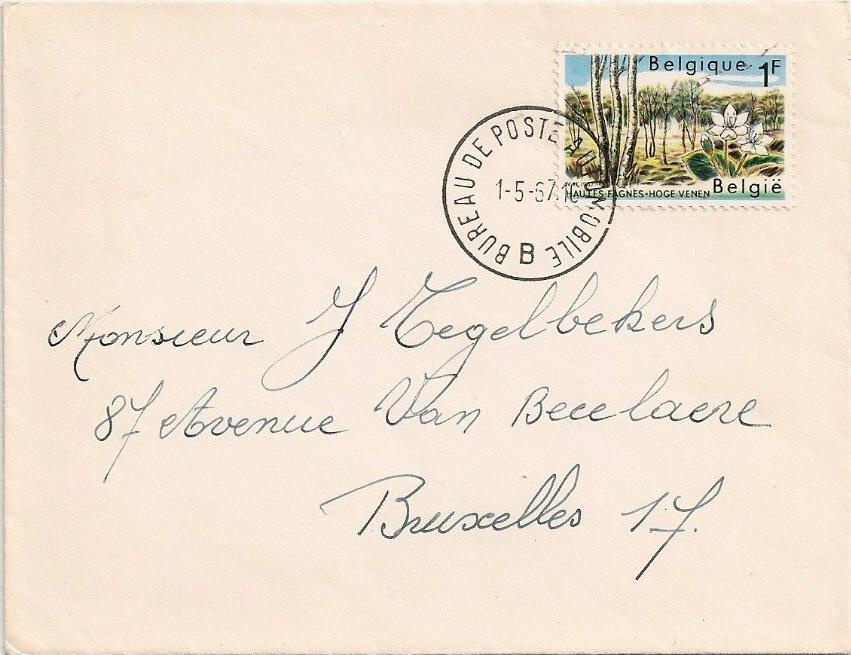 Belgique 1F
België
HAUTES FAGNES · HOGE VENEN
BUREAU DE POSTE AUTOMOBILE
1-5-67
B
Monsieur J Tegelbekers
87 Avenue Van Becelaere
Bruxelles 17.